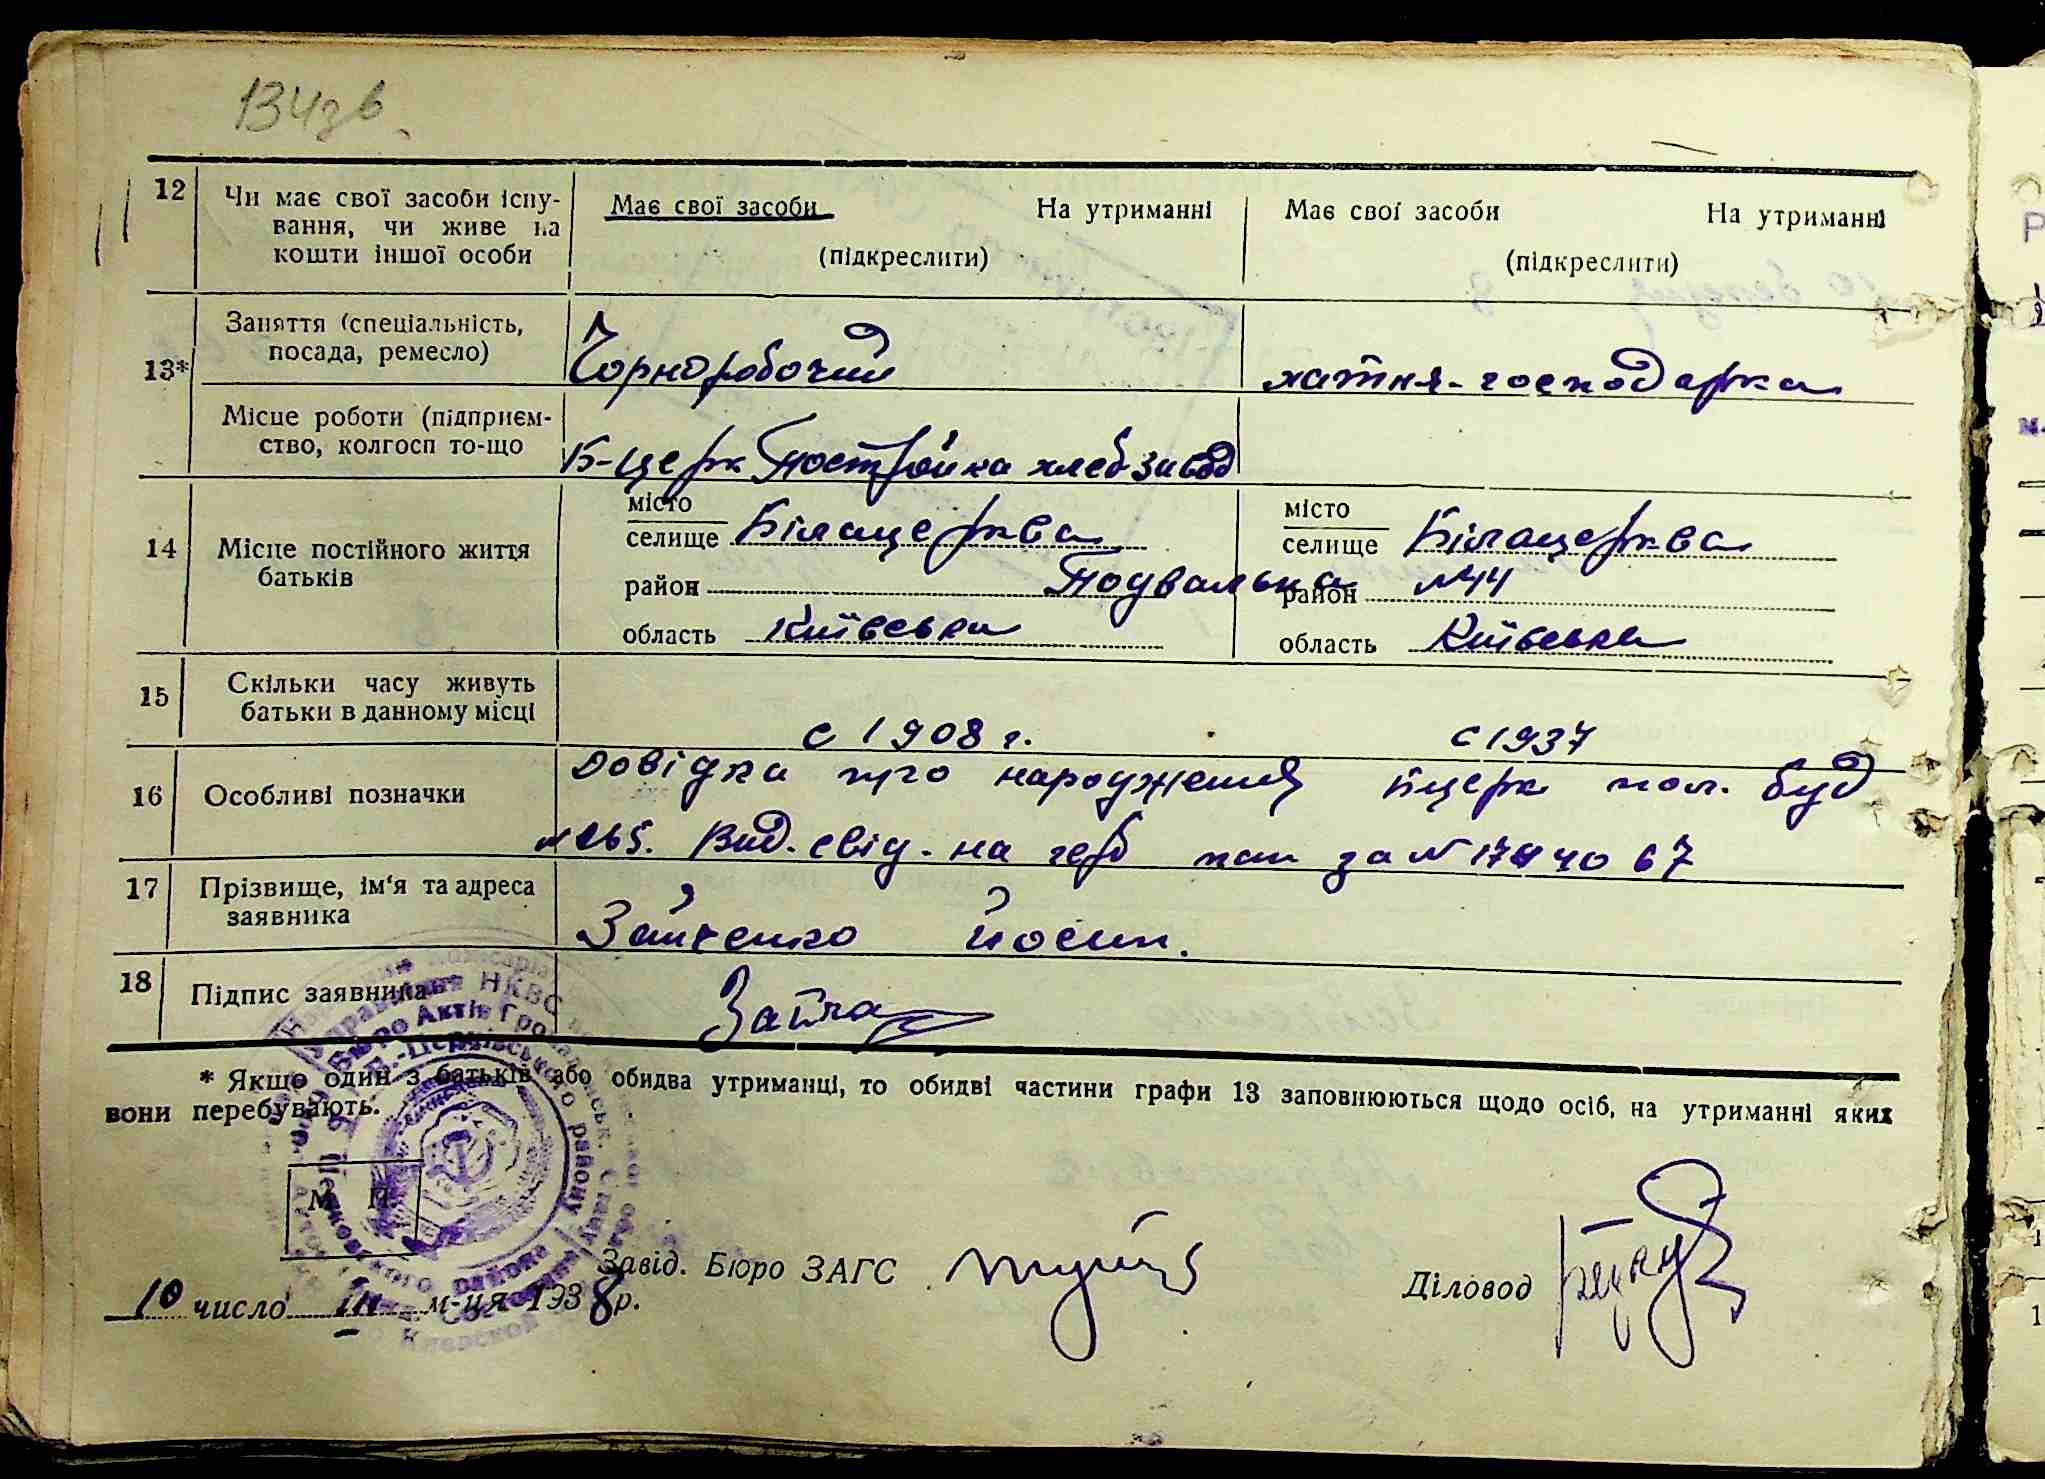 134зв
12 Чи має свої засоби існу-
вання, чи живе на
кошти іншої особи
Має свої засоби На утриманні
(підкреслити)
Має свої засоби На утриманні
(підкреслити)
13* Заняття (спеціальність,
посада, ремесло)
Чорноробочий
хатня-господарка
Місце роботи (підприєм-
ство, колгосп то-що
Б-церк Постройка хлебзавод
14 Місце постійного життя
батьків
місто
селище Білацерква
район Подвальна
область Київська
місто
селище Білацерква
район №44
область Київська
15 Скільки часу живуть
батьки в данному місці
с 1908 г. с 1937
16 Особливі позначки
Довідка про народження Бцерк пол. буд
№265. Вид. свід. на герб пап за №
17 Прізвище, ім'я та адреса
заявника
Зайченко Йосип.
18 Підпис заявника
* Якщо один з батьків або обидва утриманці, то обидві частини графи 13 заповнюються щодо осіб, на утриманні яких
вони перебувають.
М П
Управління НКВС
Бюро Актів Громадянськ. Стану
Б.-Церківського району
Завід. Бюро ЗАГС
Діловод
10 число III м-ця 1938 р.